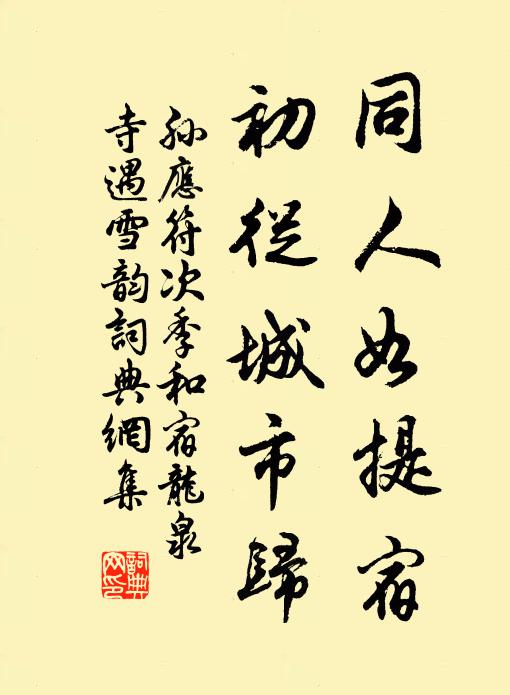 同人如提宿
初從城市歸
孫應符次季和宿龍泉
寺遇雪韵詞典網集
詞典
网印